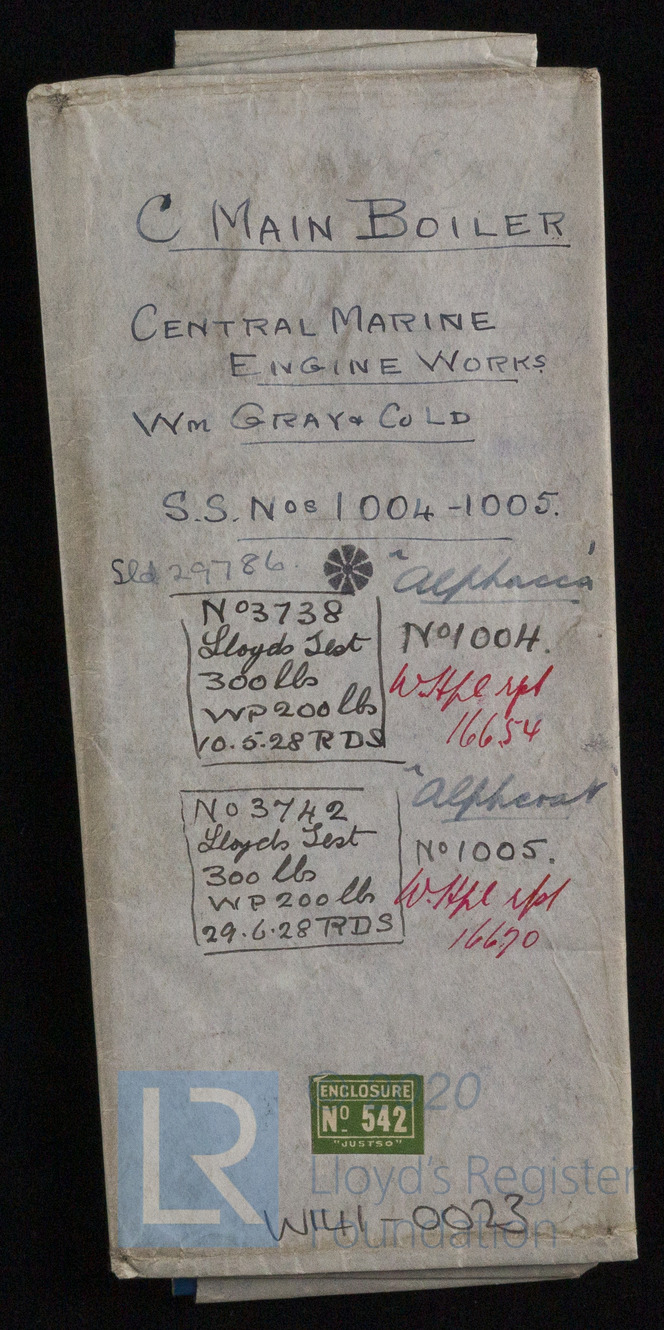 C MAIN BOILER
CENTRAL MARINE
ENGINE WORKS
WM GRAY & CO LD
S.S. Nos 1004-1005.
Sld 29786.
"Alphacca"
No 3738
Lloyds Test
300 lbs
WP 200 lbs
10.5.28 RDS
No 1004.
W.Hpl rpt
16654
"Alpherat"
No 3742
Lloyds Test
300 lbs
WP 200 lbs
29.6.28 RDS
No 1005.
W.Hpl rpt
16670
ENCLOSURE
No 542
"JUSTSO"
LR
2020
Lloyd's Register
Foundation
W141-0023